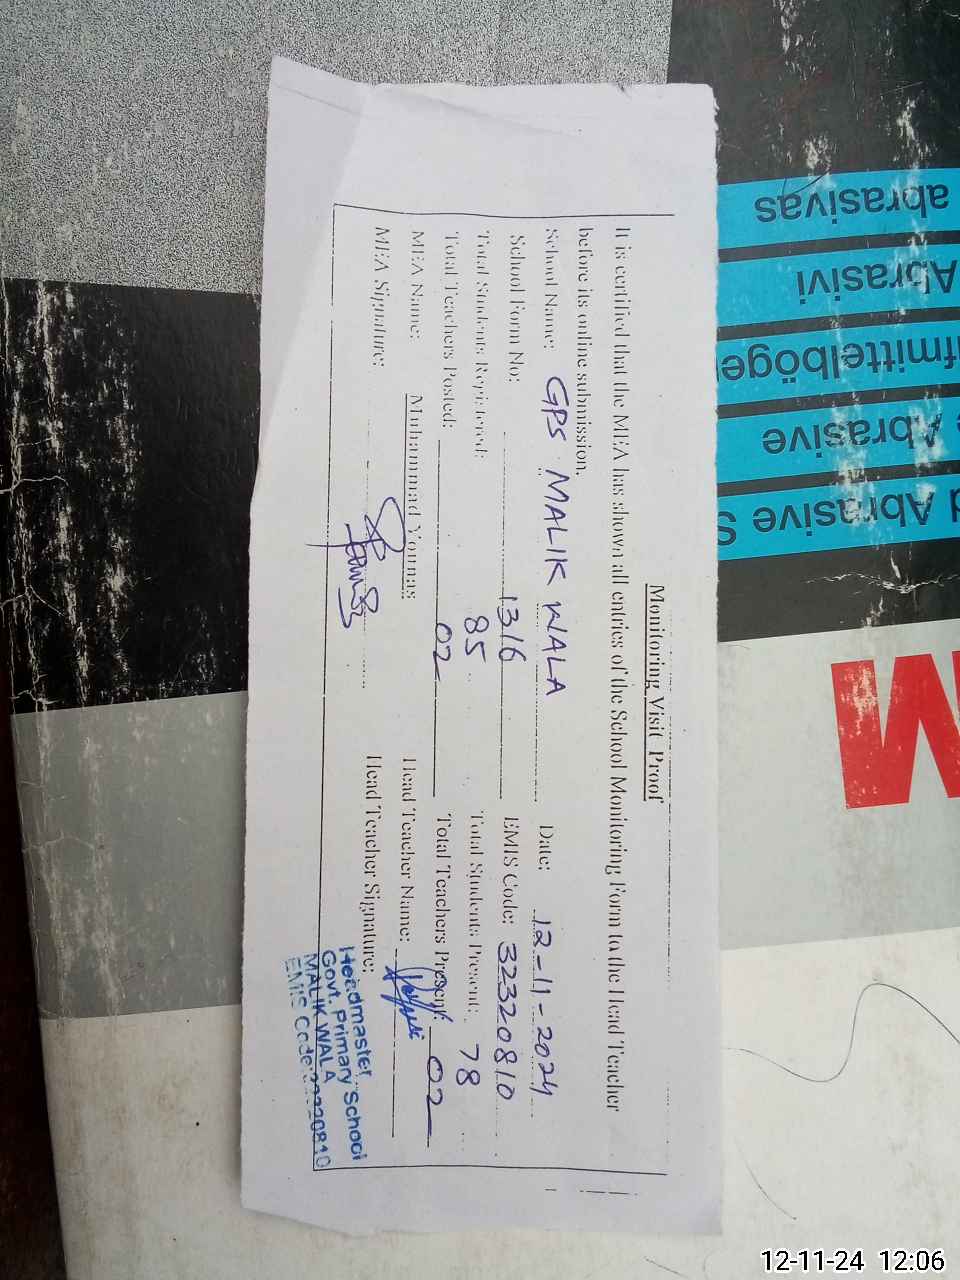 Monitoring Visit Proof
It is certified that the MEA has shown all entries of the School Monitoring Form to the Head Teacher
before its online submission.
School Name: GPS MALIK WALA Date: 12-11-2024
School Form No: 1316 EMIS Code: 32320810
Total Students Registered: 85 Total Students Present: 78
Total Teachers Posted: 02 Total Teachers Present: 02
MEA Name: Muhammad Younas Head Teacher Name:
MEA Signature: Head Teacher Signature:
Headmaster
Govt. Primary School
MALIK WALA
EMIS Code:32320810
abrasivas
Abrasivi
fmittelböge
Abrasive
d Abrasive S
M
12-11-24 12:06